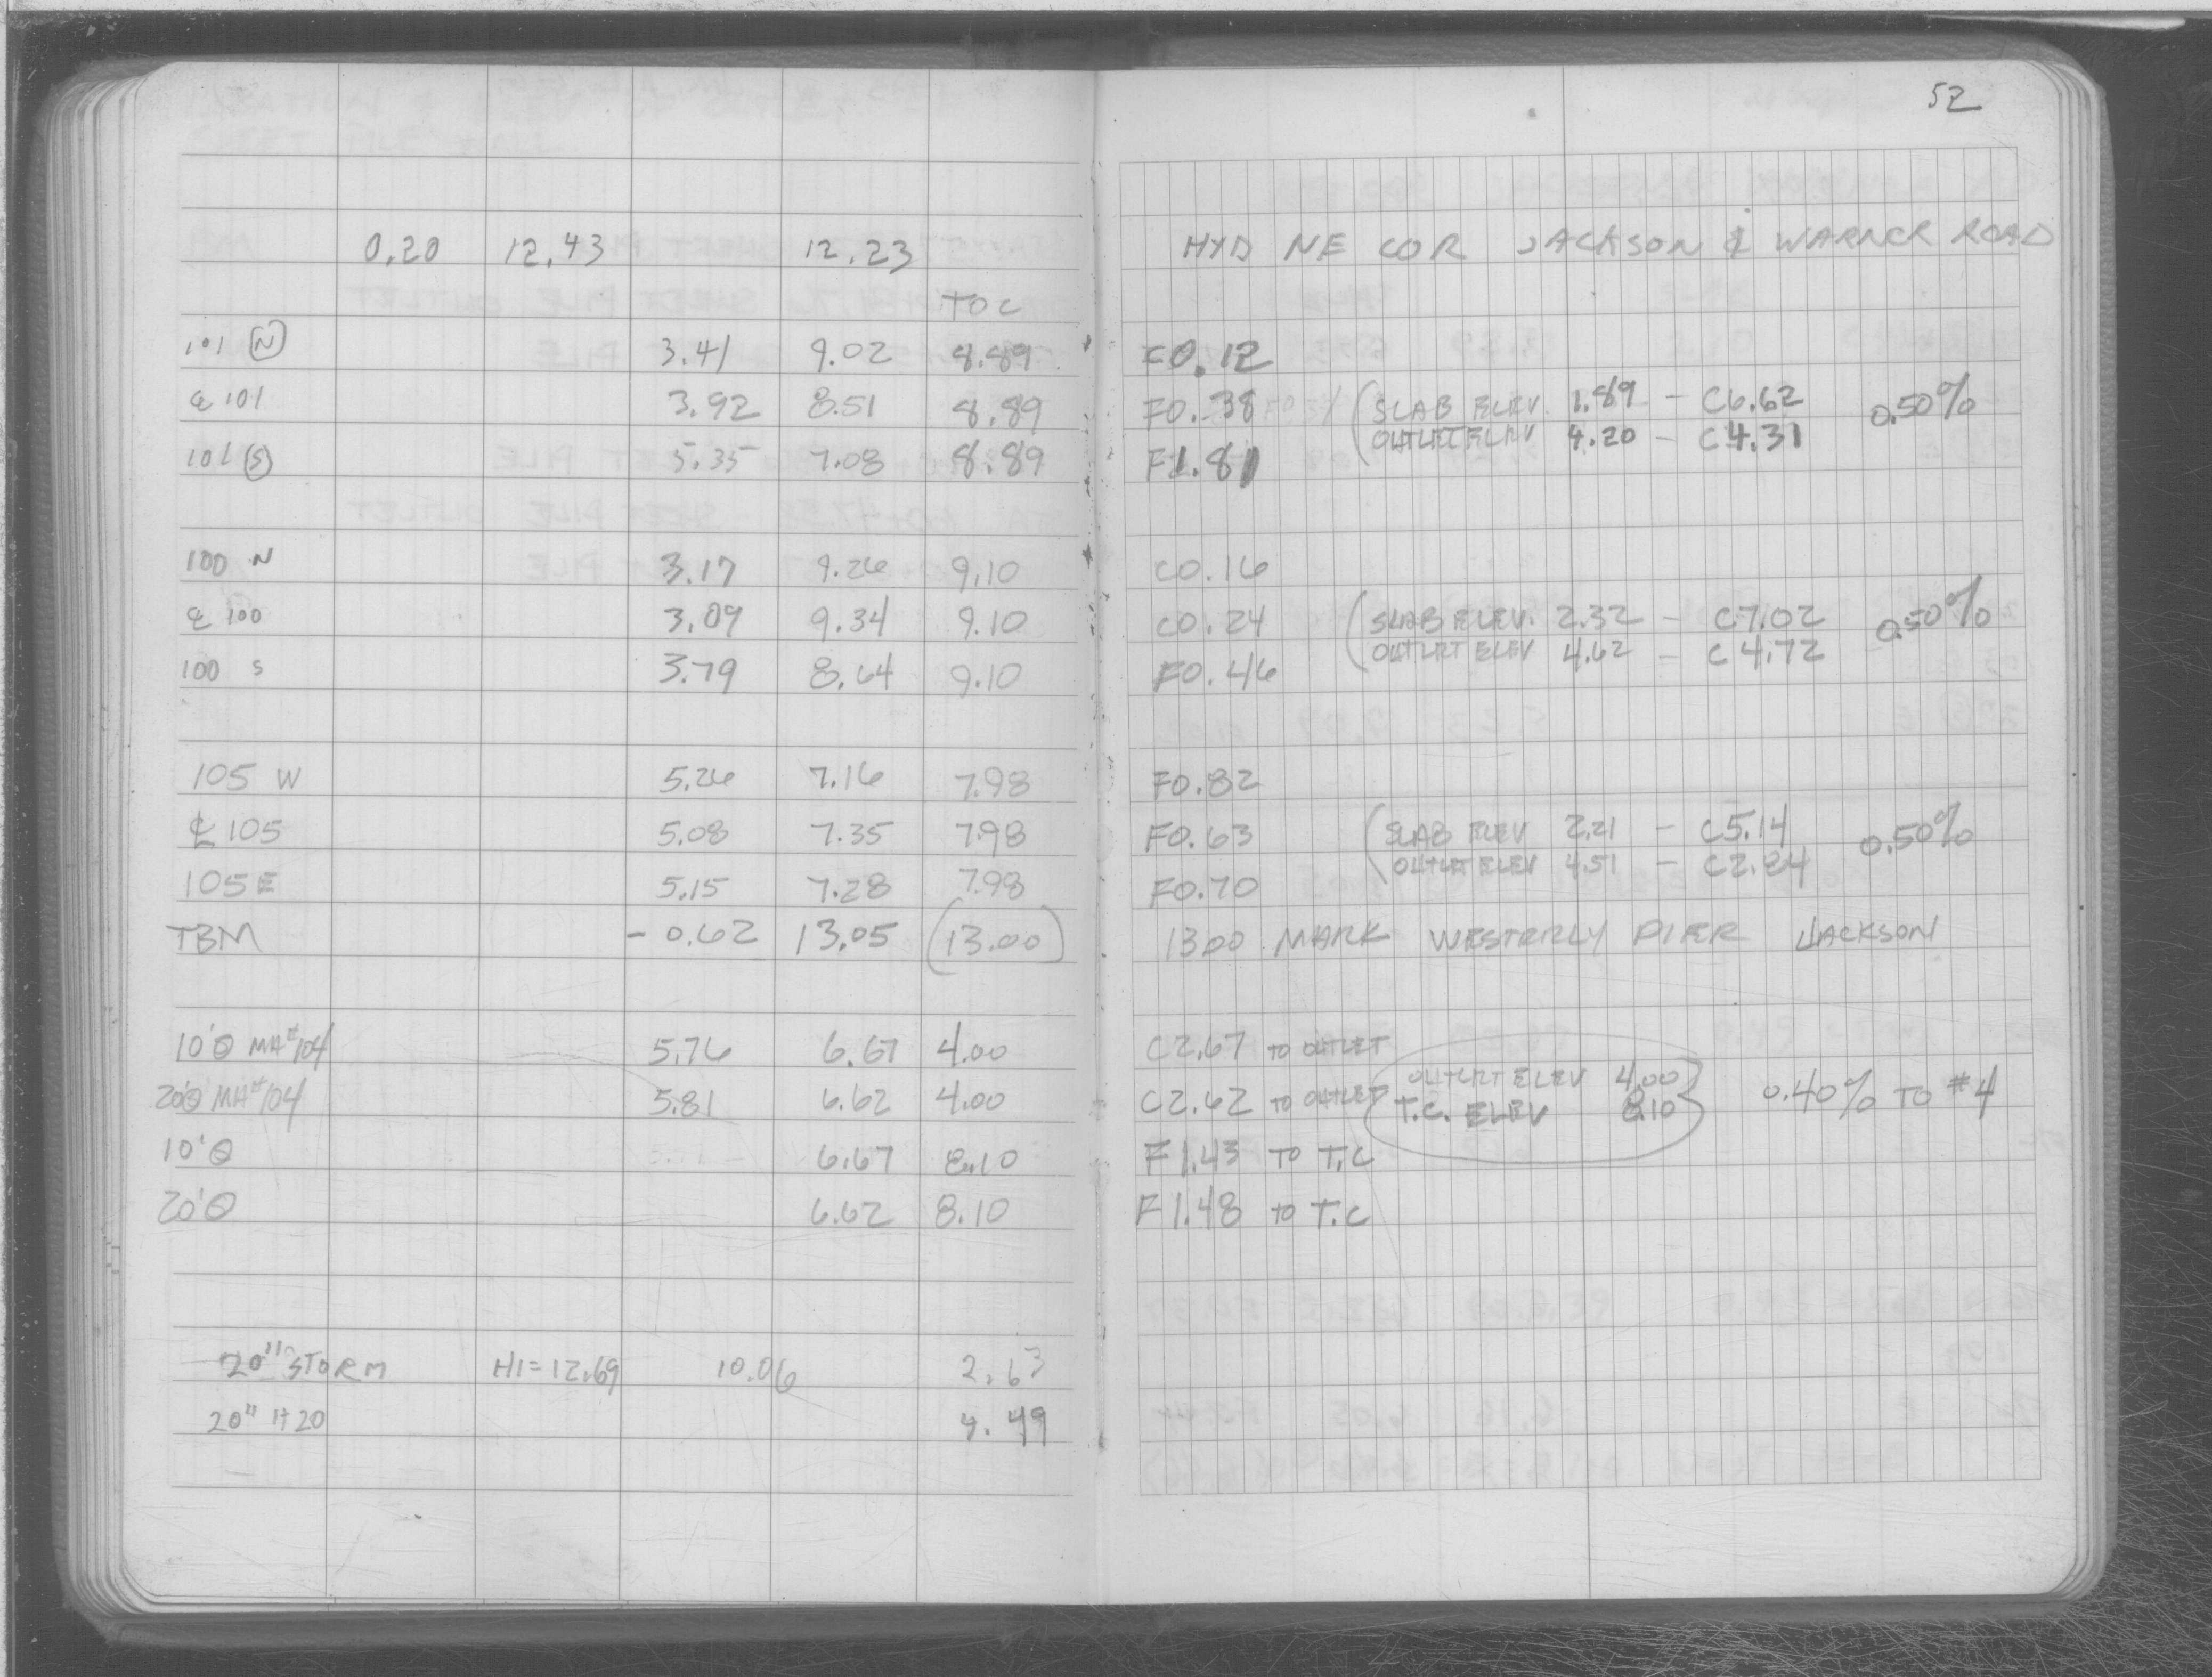 52
0.20 12.43 12.23 HYD NE COR JACKSON & WARNER ROAD
TOC
101 (N) 3.41 9.02 8.89 C0.12
℄ 101 3.92 8.51 8.89 F0.38 (SLAB ELEV. 1.89 - C6.62 0.50%
OUTLET ELEV 4.20 - C4.31
101 (S) 5.35 7.08 8.89 F1.81
100 N 3.17 9.26 9.10 C0.16
℄ 100 3.09 9.34 9.10 C0.24 (SLAB ELEV. 2.32 - C7.02 0.50%
OUTLET ELEV 4.62 - C4.72
100 S 3.79 8.64 9.10 F0.46
105 W 5.26 7.16 7.98 F0.82
℄ 105 5.08 7.35 7.98 F0.63 (SLAB ELEV 2.21 - C5.14 0.50%
OUTLET ELEV 4.51 - C2.84
105 E 5.15 7.28 7.98 F0.70
TBM - 0.62 13.05 (13.00) 13.00 MARK WESTERLY PIER JACKSON
10'Θ MH#104 5.76 6.67 4.00 C2.67 TO OUTLET
OUTLET ELEV 4.00
20'Θ MH#104 5.81 6.62 4.00 C2.62 TO OUTLET T.C. ELEV 8.10 } 0.40% TO #4
10'Θ 6.67 8.10 F1.43 TO T.C
20'Θ 6.62 8.10 F1.48 TO T.C
20" STORM HI=12.69 10.06 2.63
20" H20 4.49